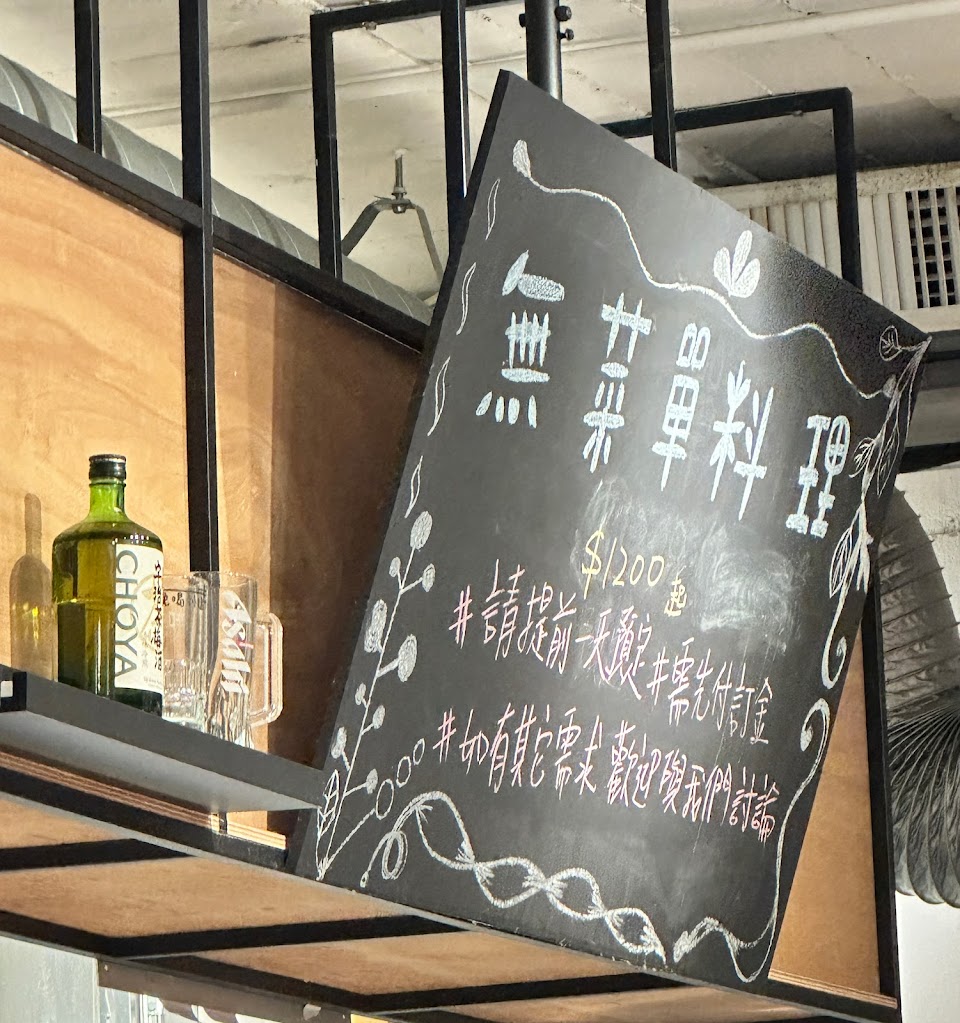 無菜單料理
$1200起
#請提前一天預定 #需先付訂金
#如有其它需求 歡迎與我們討論
CHOYA
Asahi